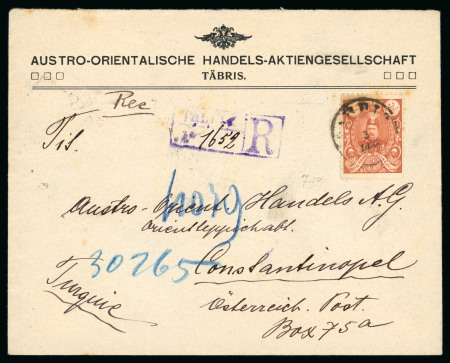 AUSTRO-ORIENTALISCHE HANDELS-AKTIENGESELLSCHAFT
TÄBRIS.
Rec
1652 R
Austro-Orient. Handels A.G.
30265
Constantinopel
Turquie
Österreich. Post.
Box 75a